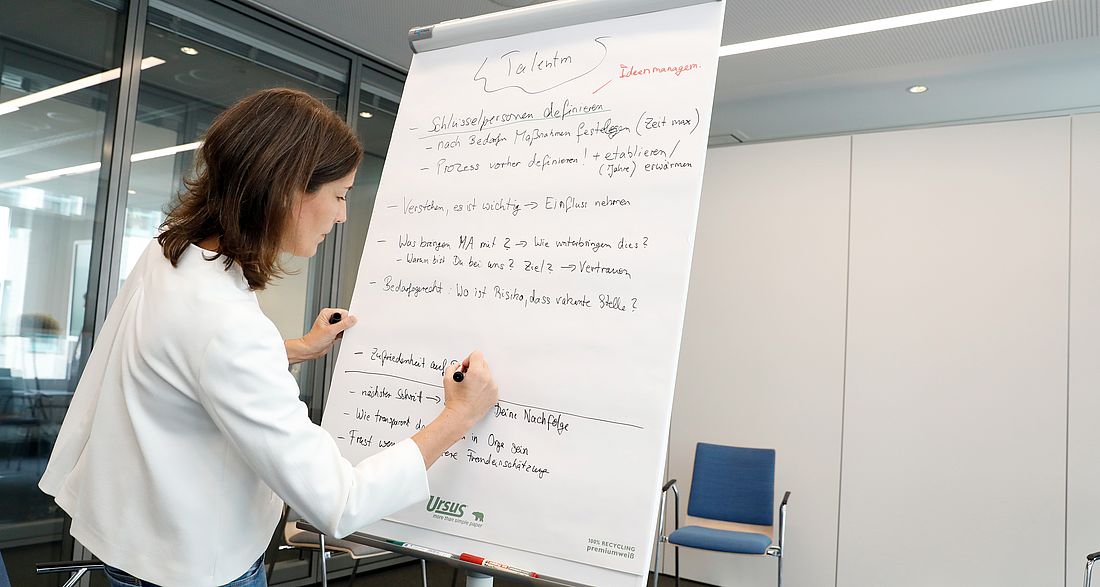 Talentm
Ideenmanagem.
- Schlüsselpersonen definieren
- nach Bedarfn Maßnahmen festlegen (Zeit max)
- Prozess vorher definieren! + etablieren/
(Jahre) erwärmen
- Verstehen, es ist wichtig → Einfluss nehmen
- Was bringen MA mit? → Wie unterbringen dies?
- Warum bist Du bei uns? Ziel? → Vertrauen
- Bedarfsgerecht: Wo ist Risiko, dass vakante Stelle?
- Zufriedenheit auf
- nächster Schritt → Deine Nachfolge
- Wie transparent in Orga sein
- Frust Fremdeinschätzung
Ursus
more than simple paper
100% RECYCLING
premiumweiß